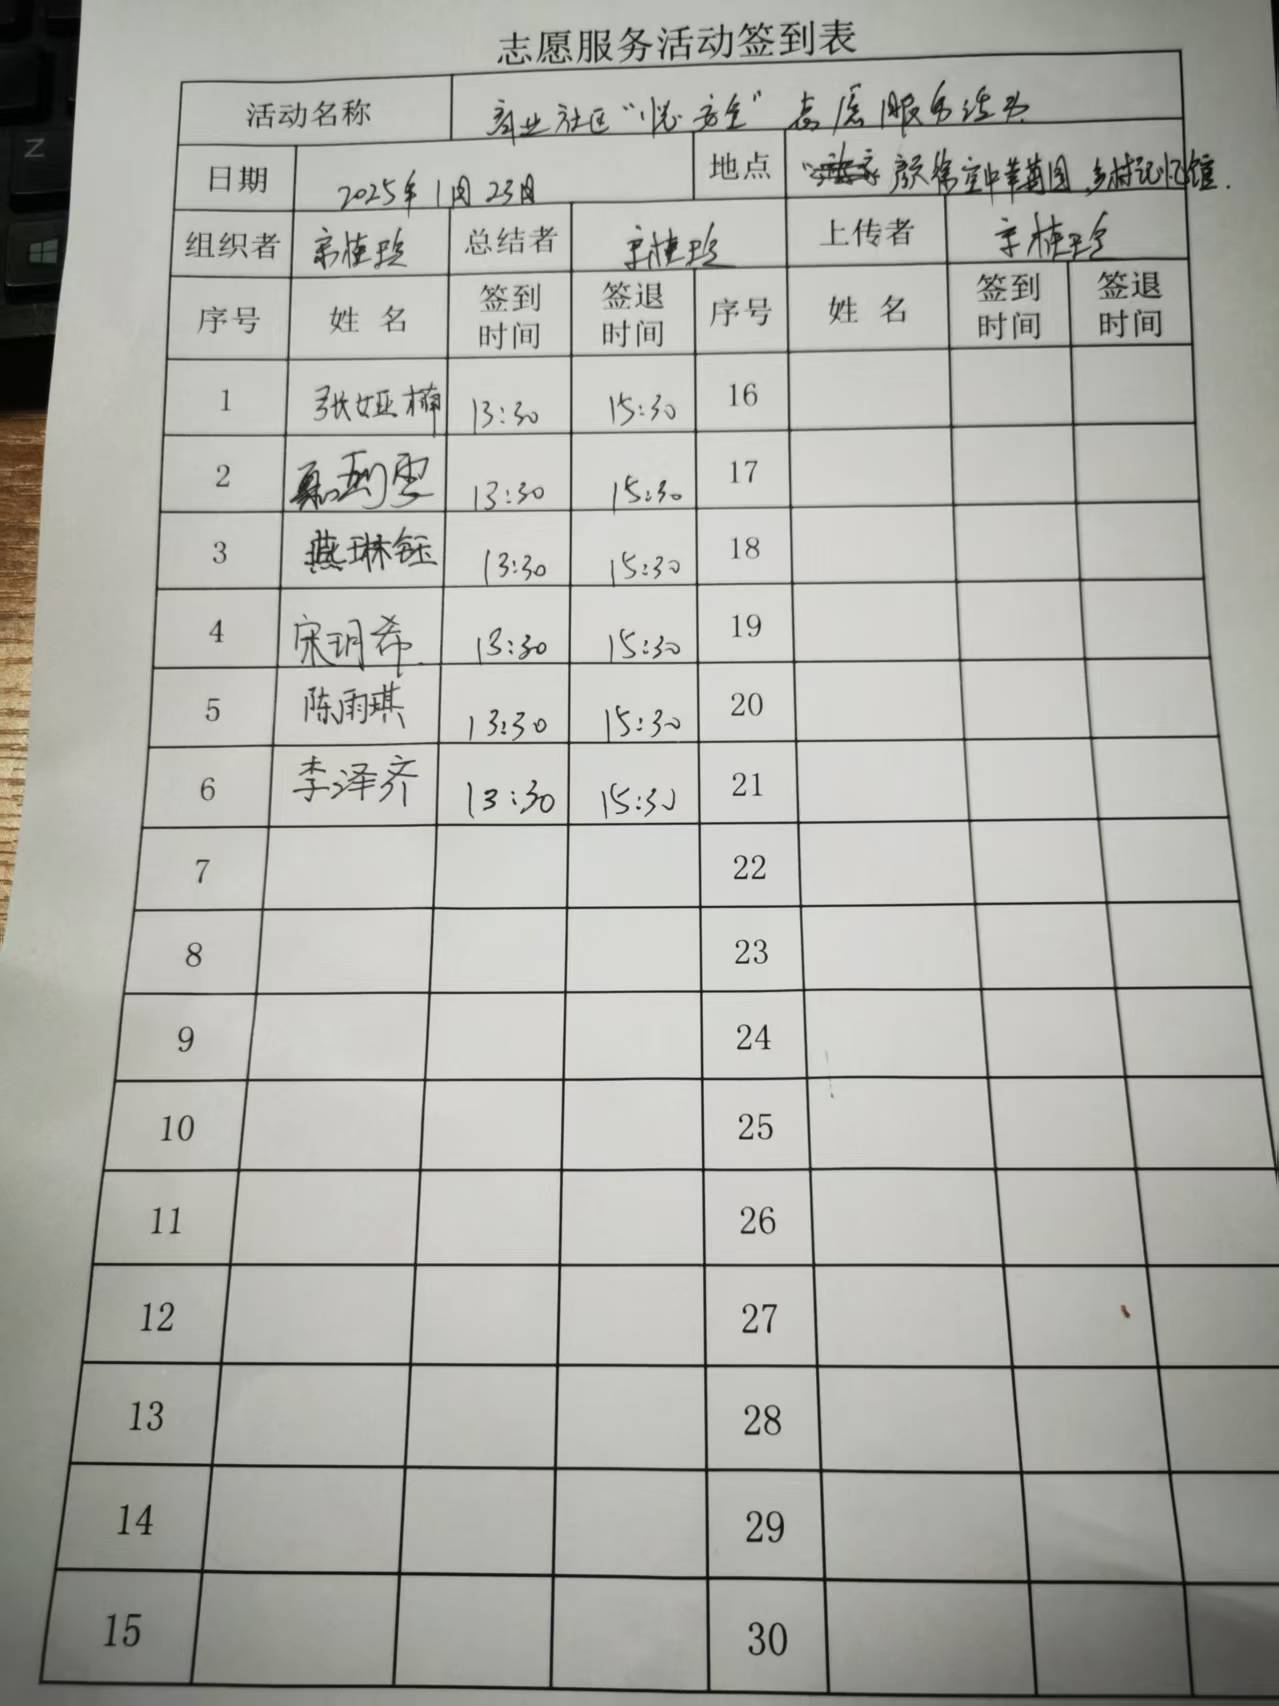 志愿服务活动签到表
活动名称 社区“悦 安全”志愿服务活动
日期 2025年1月23日 地点 颜徐堂中草药园、乡村记忆馆.
组织者 宗桂玲 总结者 宗桂玲 上传者 宗桂玲
序号 姓 名 签到时间 签退时间 序号 姓 名 签到时间 签退时间
1 张娅楠 13:30 15:30 16
2 13:30 15:30 17
3 燕琳钰 13:30 15:30 18
4 宋玥希 13:30 15:30 19
5 陈雨琪 13:30 15:30 20
6 李泽齐 13:30 15:30 21
7 22
8 23
9 24
10 25
11 26
12 27
13 28
14 29
15 30
Z